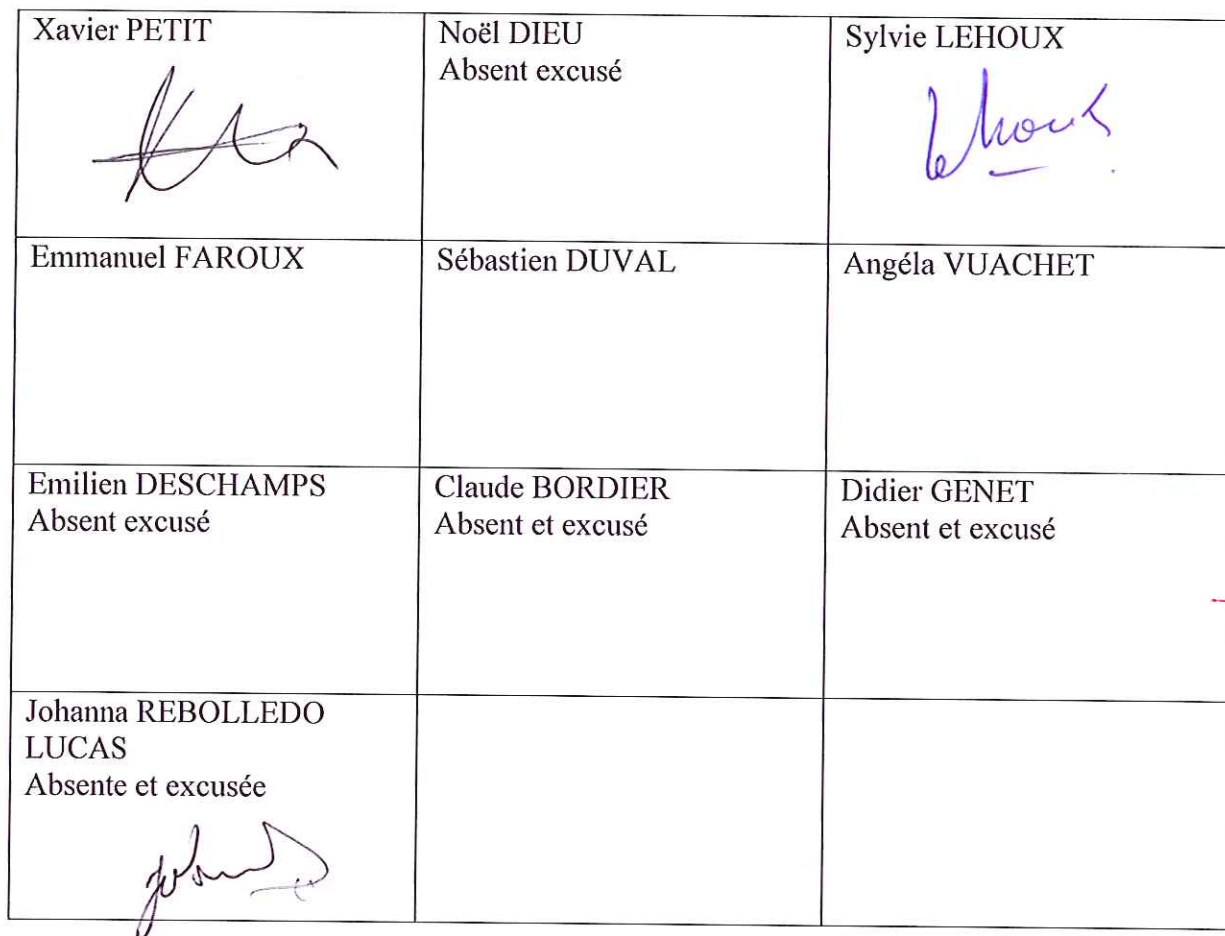 Xavier PETIT
Noël DIEU
Absent excusé
Sylvie LEHOUX
Lehoux
Emmanuel FAROUX
Sébastien DUVAL
Angéla VUACHET
Emilien DESCHAMPS
Absent excusé
Claude BORDIER
Absent et excusé
Didier GENET
Absent et excusé
Johanna REBOLLEDO
LUCAS
Absente et excusée